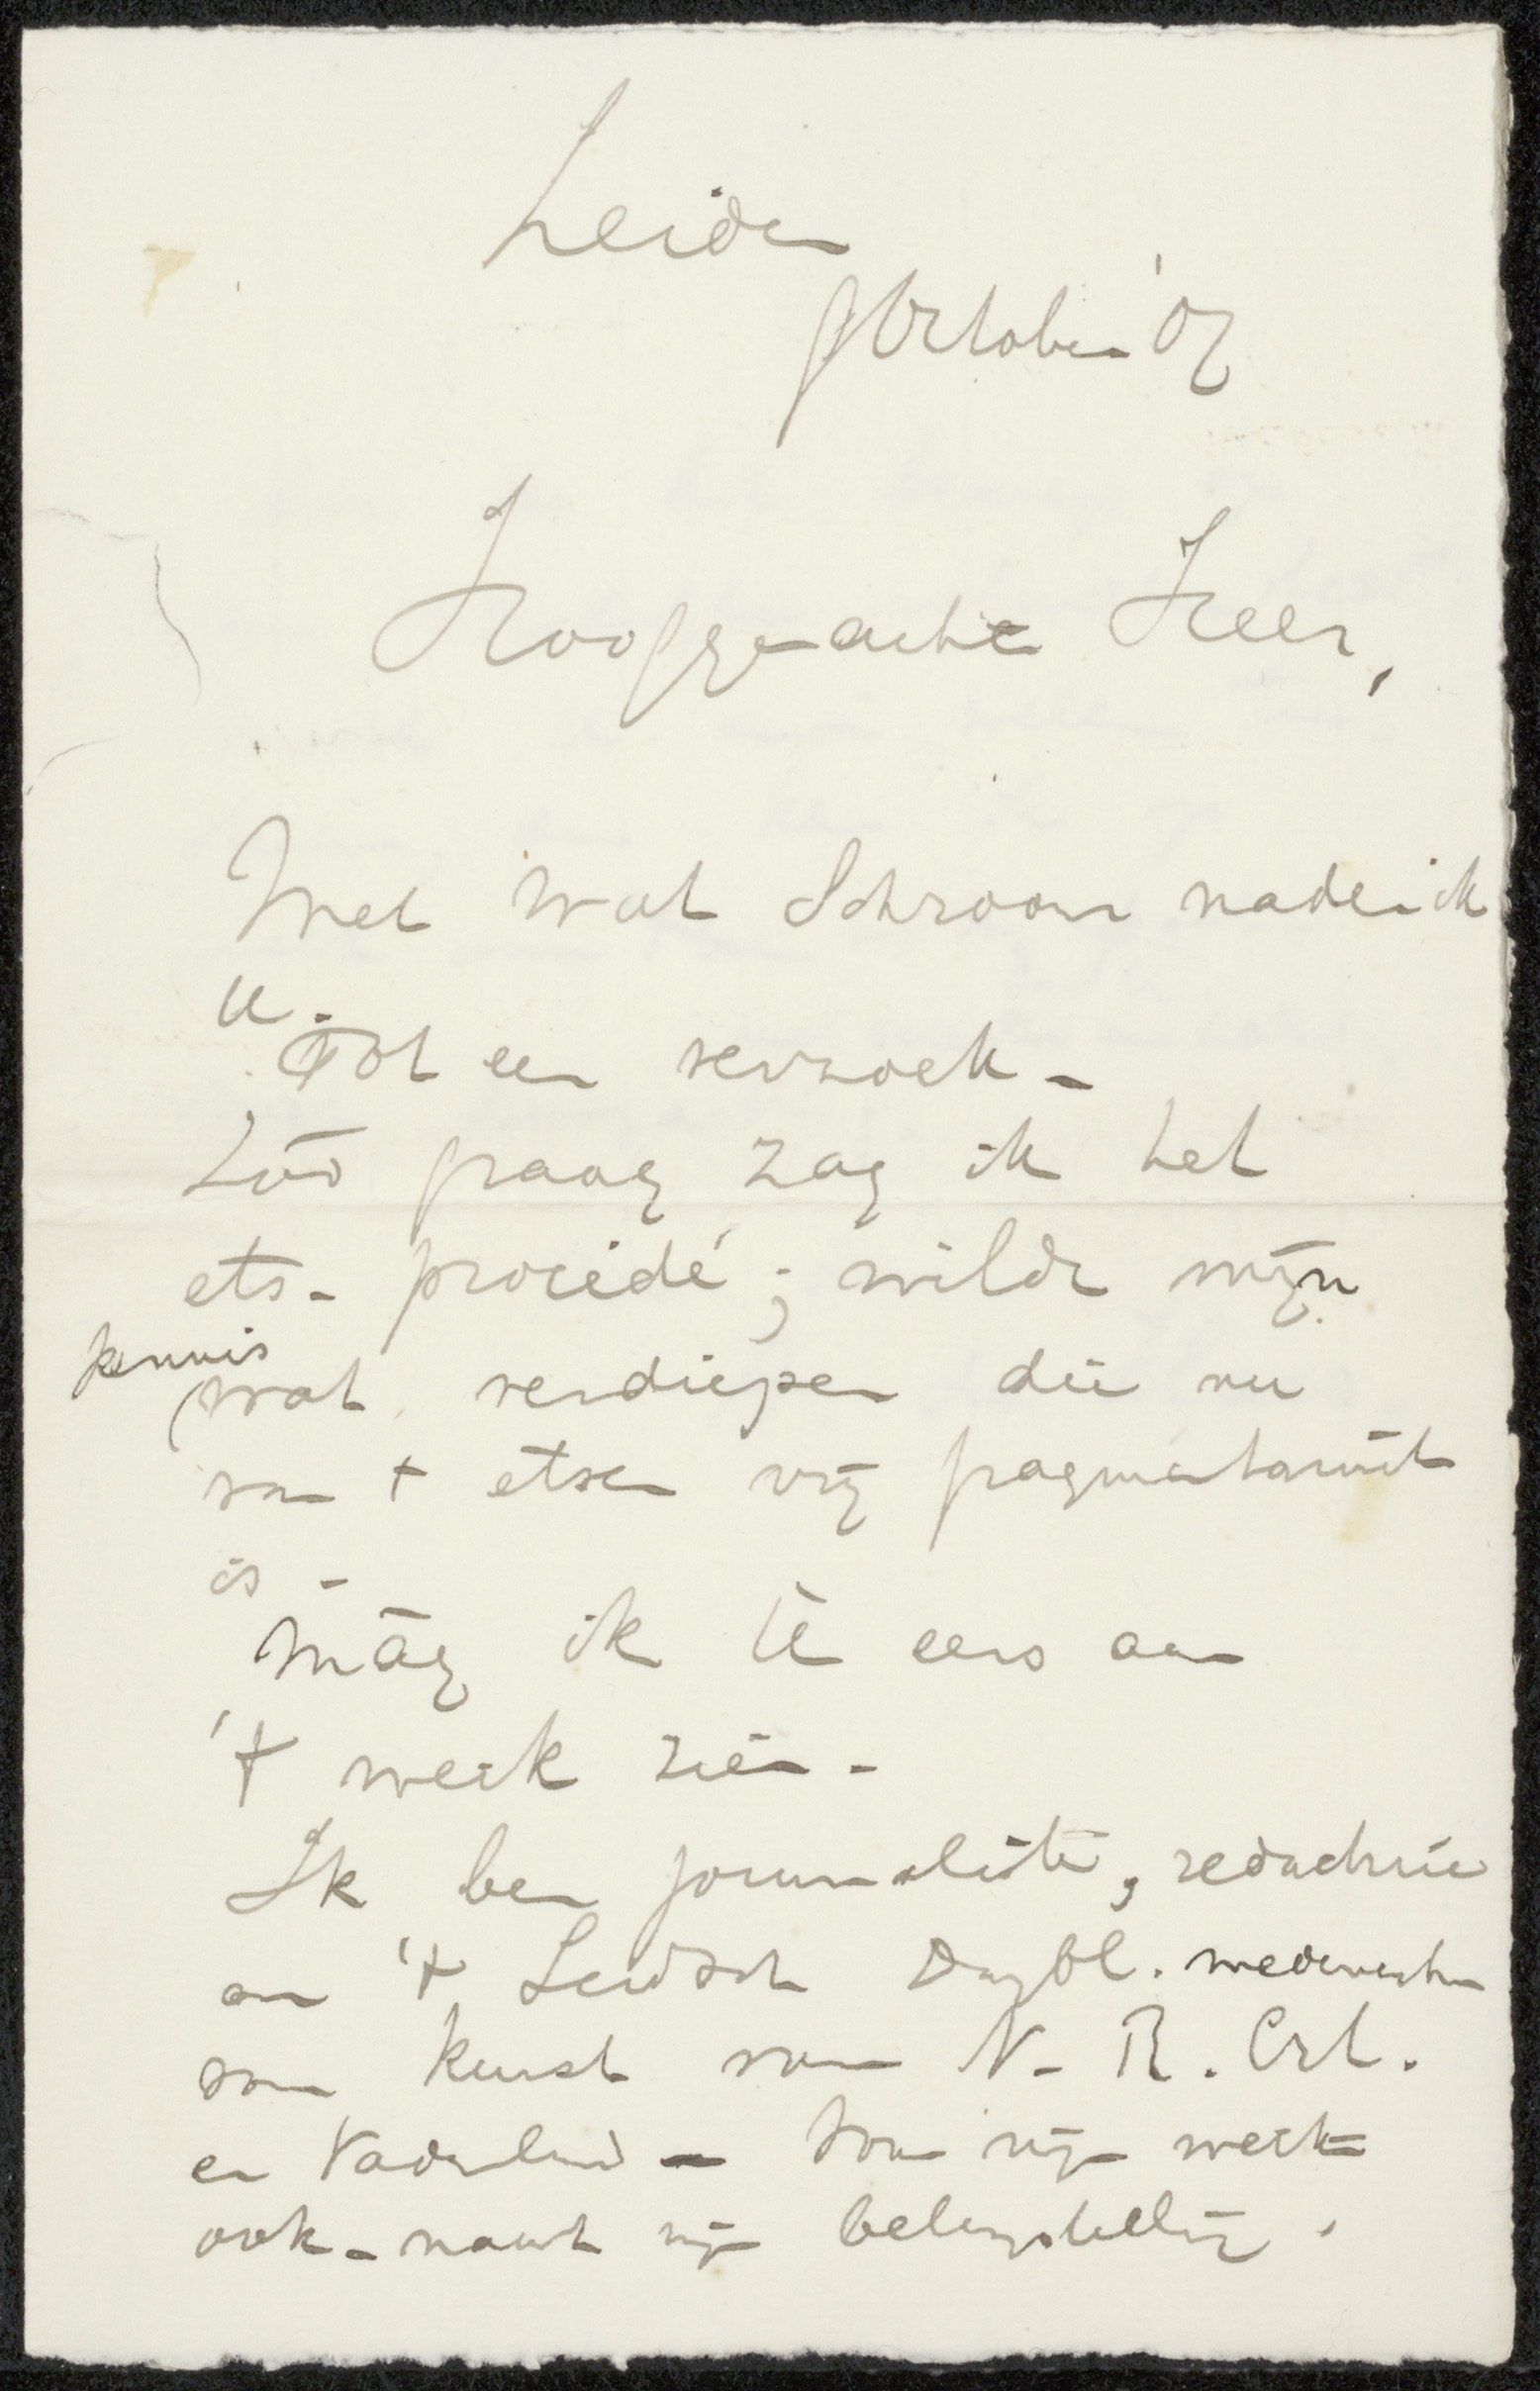 Leiden
October '07
Hooggeachte Heer,
Met wat schroom nader ik
U.
Tot een verzoek -
Zóó graag zag ik het
ets-procédé; wilde mijn
kennis
wat verdiepen die nu
van 't etsen vrij fragmentarisch
is -
Mag ik U eens aan
't werk zien -
Ik ben journaliste, redactrice
aan 't Leidsch Dagbl. medewerkster
van kunst van N. R. Crt.
en Vaderland - Van mijn werk
ook - naast mijn belangstelling.